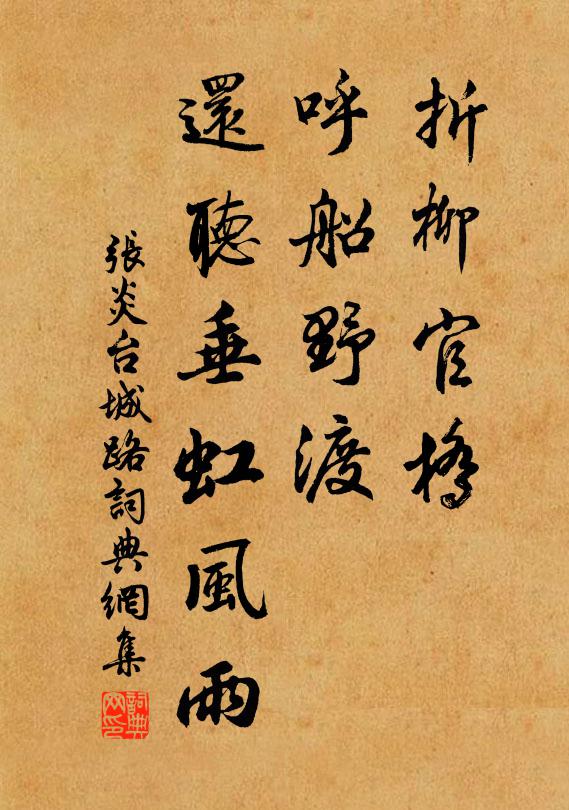 折柳官橋
呼船野渡
還聽垂虹風雨
張炎台城路詞典網集
詞典网印